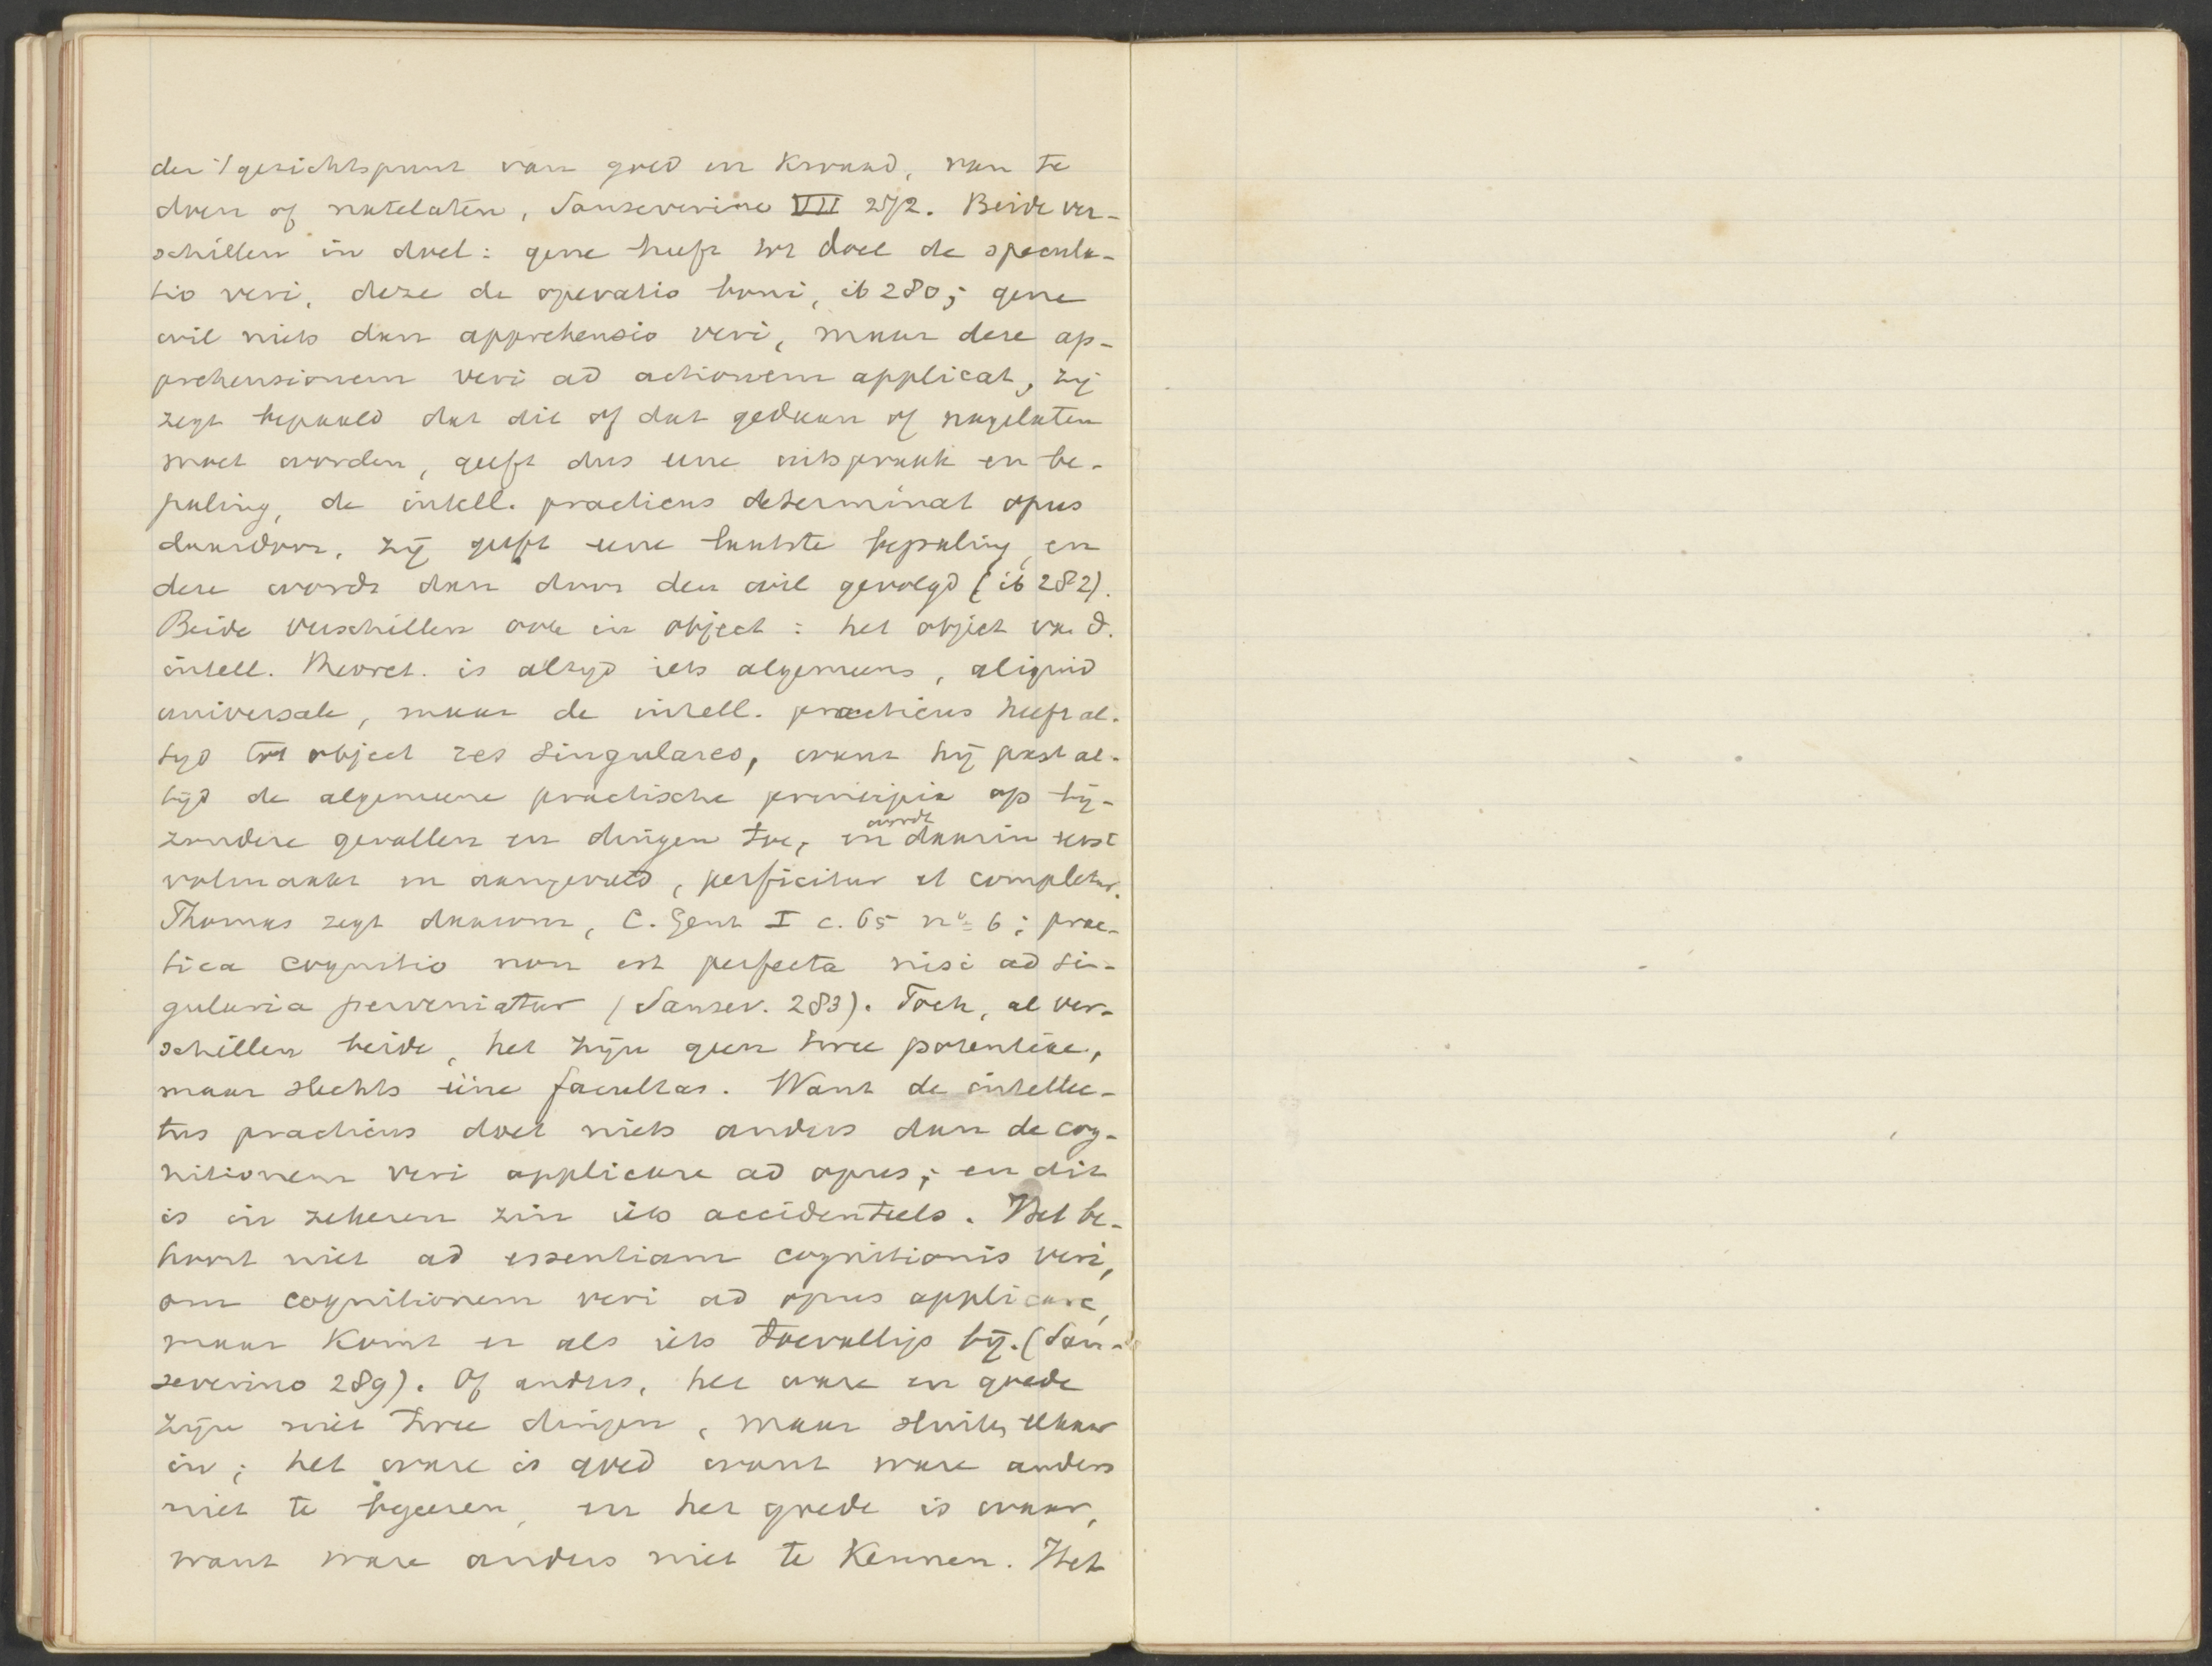 der 't gezichtspunt van goed en kwaad, van te
doen of natelaten, Sanseverino VII 272. Beide ver-
schillen in doel: gene heeft tot doel de specula-
tio veri, deze de operatio boni, ib 280; gene
wil niets dan apprehensio veri, maar deze ap-
prehensionem veri ad actionem applicat, zij
zegt bepaald dat dit of dat gedaan of nagelaten
moet worden, geeft dus eene uitspraak en be-
paling, de intell. practicus determinat opus
daardoor, zij geeft eene laatste bepaling, en
deze wordt dan door den wil gevolgd (ib 282).
Beide verschillen ook in object: het object va. d.
intell. theoret. is altijd iets algemeens, aliquid
universale, maar de intell. practicus heeft al-
tijd tot object res singulares, want hij past al-
tijd de algemeene practische principia op bij-
zondere gevallen en dingen toe, en wordt daarin eerst
volmaakt en aangevuld, perficitur et completur.
Thomas zegt daarom, C. Gent I c. 65 no 6: prac-
tica cognitio non est perfecta nisi ad sin-
gularia perveniatur (Sansev. 283). Toch, al ver-
schillen beide, het zijn geen twee potentiae,
maar slechts ééne facultas. Want de intellec-
tus practicus doet niets anders dan de cog-
nitionem veri applicare ad opus; en dit
is in zekeren zin iets accidenteels. Het be-
hoort niet ad essentiam cognitionis veri,
om cognitionem veri ad opus applicare,
maar komt er als iets toevalligs bij. (San-
severino 289). Of anders, het ware en goede
zijn niet twee dingen, maar sluiten elkaar
in; het ware is goed want ware anders
niet te begeeren, en het goede is waar,
want ware anders niet te kennen. Het